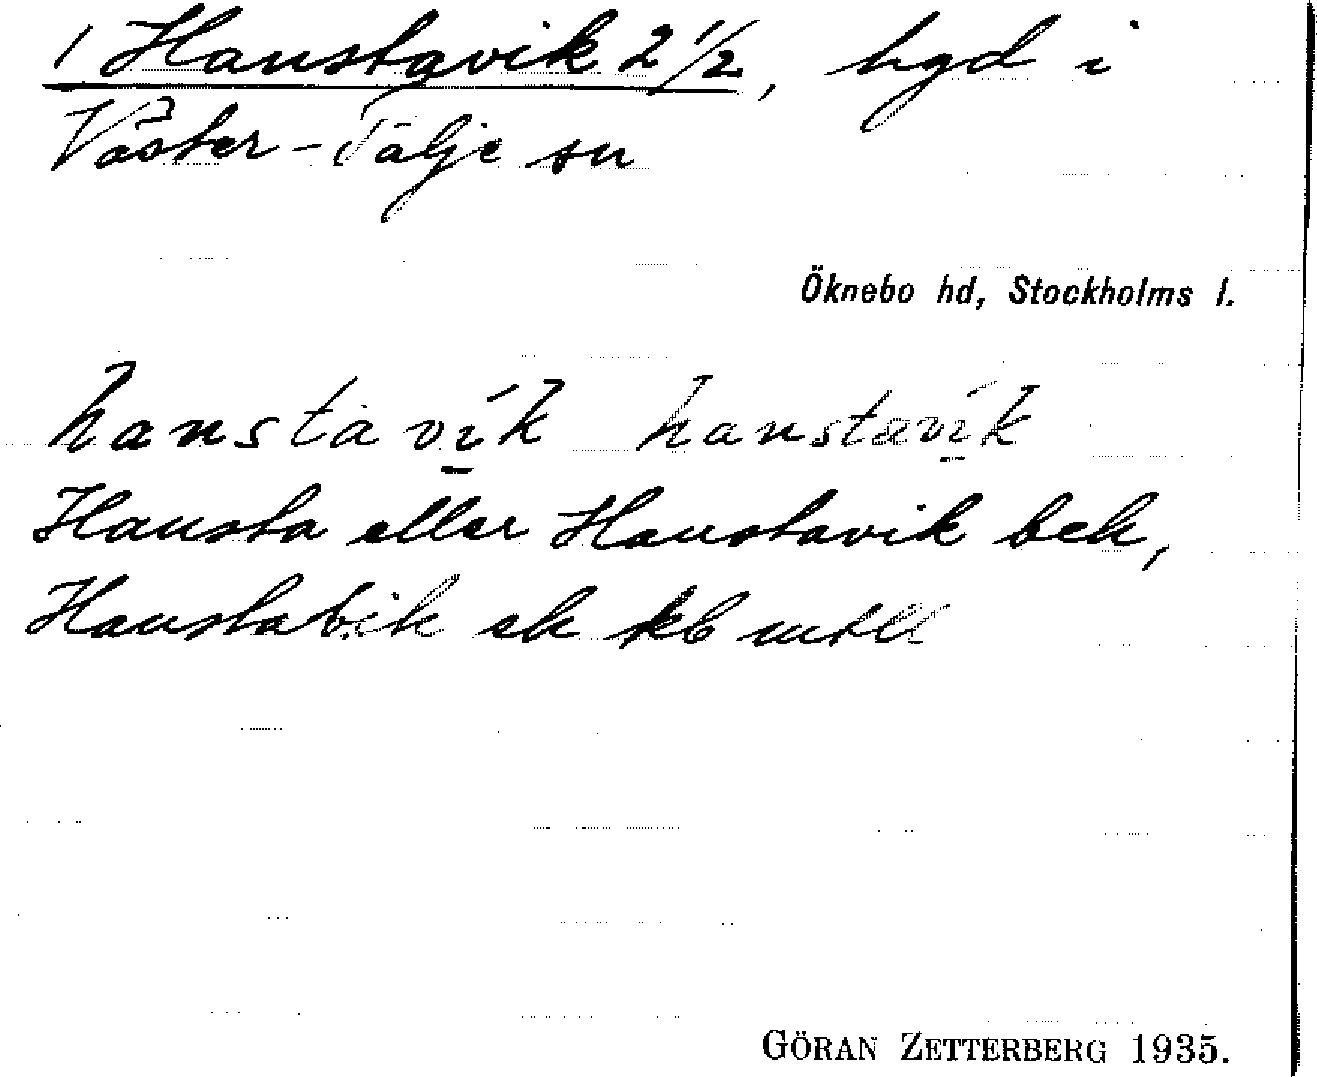 1 Hanstavik 2 1/2, hgd i
Väster-Tälje sn
Öknebo hd, Stockholms l.
hanstavik hanstavik
Hansta eller Hanstavik bek,
Hanstavik ek kb mtll
GÖRAN ZETTERBERG 1935.